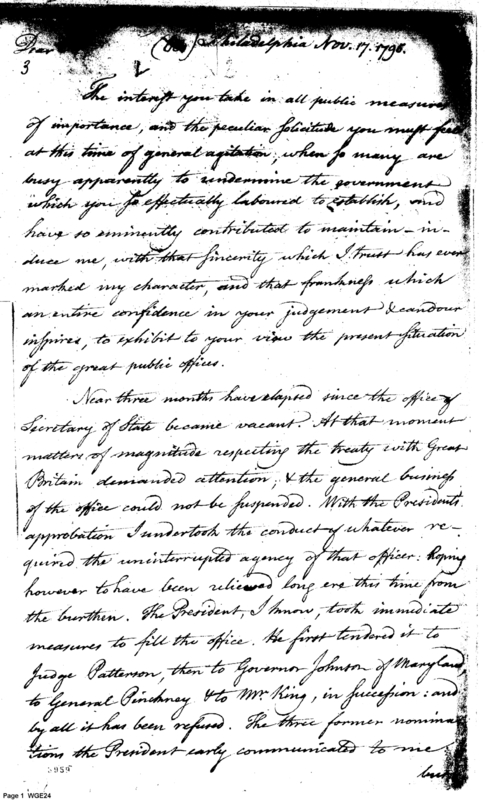 Dear (Private) Philadelphia Nov. 17. 1795.
3
The interest you take in all public measures
of importance, and the peculiar solicitude you must feel
at this time of general agitation, when so many are
busy apparently to undermine the government
which you so effectually laboured to establish, and
have so eminently contributed to maintain – in-
duce me, with that sincerity which I trust has ever
marked my character, and that frankness which
an entire confidence in your judgement & candour
inspires, to exhibit to your view the present situation
of the great public offices.
Near three months have elapsed since the office of
Secretary of State became vacant. At that moment
matters of magnitude respecting the treaty with Great
Britain demanded attention; & the general business
of the office could not be suspended. With the Presidents
approbation I undertook the conduct of whatever re-
quired the uninterrupted agency of that officer: hoping
however to have been relieved long ere this time from
the burthen. The President, I know, took immediate
measures to fill the office. He first tendered it to
Judge Patterson, then to Governor Johnson of Maryland,
to General Pinckney & to Mr King, in succession: and
by all it has been refused. The three former nomina
tions the President early communicated to me
but
5959
Page 1 WGE24